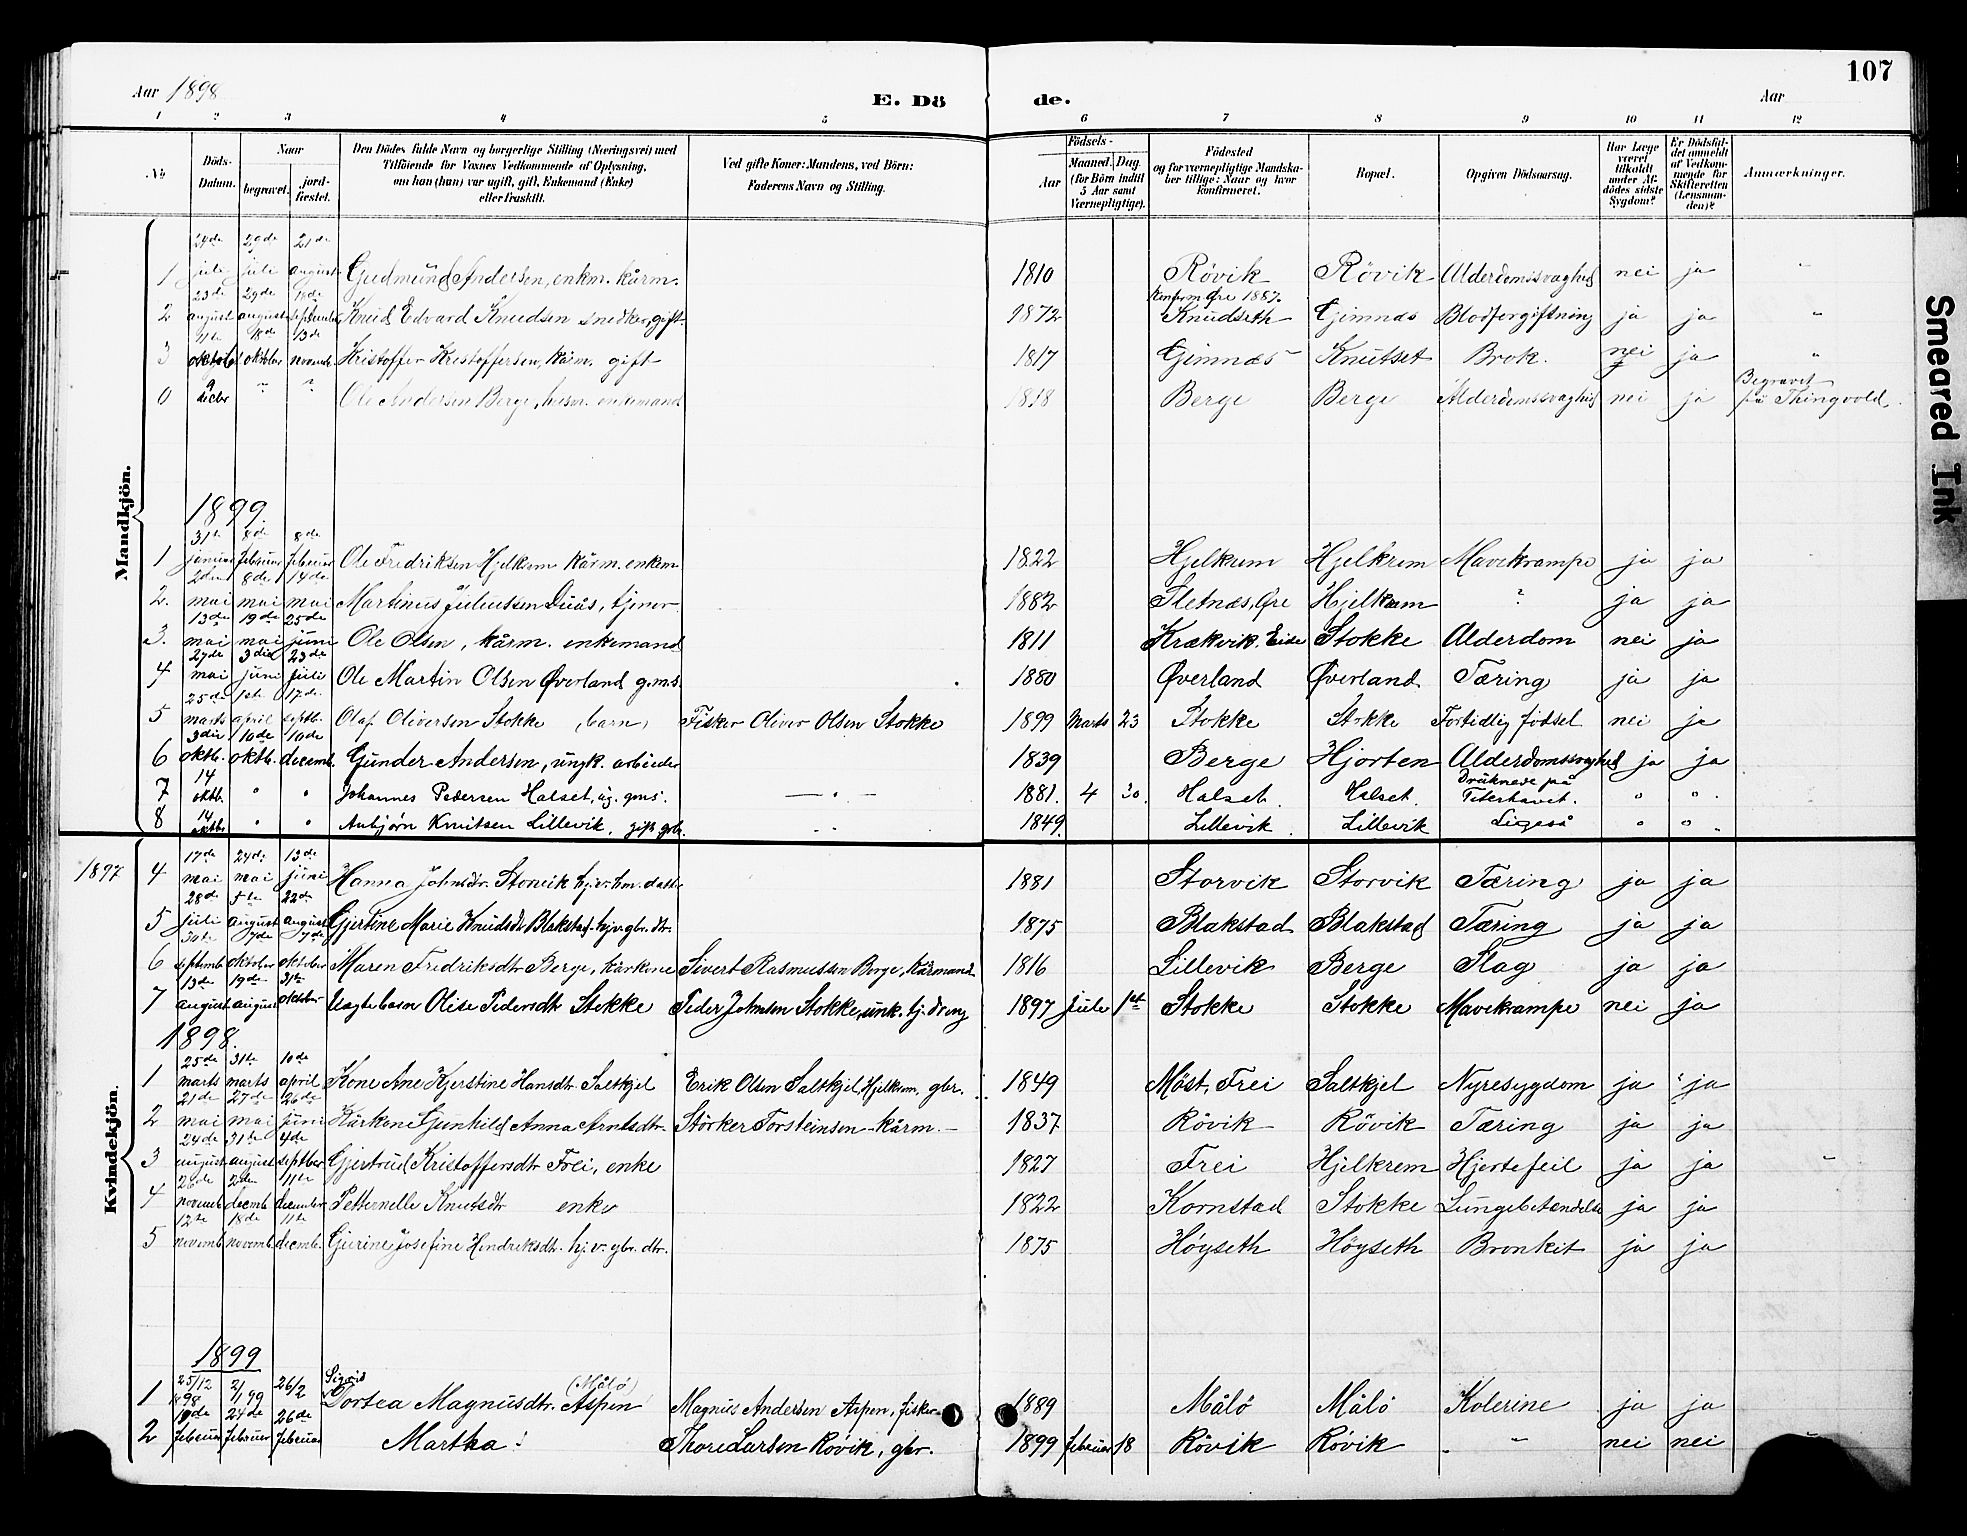 107
Aar 1898
E. Dö de.
Aar
1 2 3 4 5 6 7 8 9 10 11 12
No
Döds-Datum.
Naar
begravet.
jord-fæstet.
Den Dödes fulde Navn og borgerlige Stilling (Næringsvei) med
Tilföiende for Voxnes Vedkommende af Oplysning,
om han (hun) var ugift, gift, Enkemand (Enke)
eller fraskilt.
Ved gifte Koner: Mandens, ved Börn:
Faderens Navn og Stilling.
Födsels-
Aar
Maaned. Dag.
(for Börn indtil
5 Aar samt
Værnepligtige).
Födested
og for værnepligtige Mandska-
ber tillige: Naar og hvor
konfirmeret.
Bopæl.
Opgiven Dödsaarsag.
Har Læge
været
tilkaldt
under Af-
dödes sidste
Sygdom?
Er Dödsfal-
det anmeldt
af Vedkom-
mende for
Skifteretten
(Lensman-
den)?
Anmærkninger.
Mandkjön.
1 24de juli 29de juli 21de august Gudmund Andersen, enkm. kårm. 1810 Rövik Rövik Alderdomssvaghed nei ja "
2 23de august 29de august 18de september Knud Edvard Knudsen snedker, gift 1872 Konfirm Øre 1887. Knudseth Gimnæs Blodforgiftning ja ja "
3 11te oktober 18de oktober 13de novemb. Kristoffer Kristoffersen, kårm. gift 1817 Gimnæs Knutset Brok. nei ja "
0 9 decbr " " Ole Andersen Berge, husm. enkemand 1818 Berge Berge Alderdomssvaghed nei ja Begravet på Thingvold.
1899
1 31te januar 8de februar 8de februar Ole Fredriksen Hjelkrem kårm. enkem 1822 Hjelkrem Hjelkrem Mavekrampe ja ja
2. 2den mai 8de mai 14de mai Martinus Juliussen Duås, tjener 1882 Sletnæs, Øre Hjelkrem ? ja ja
3. 13de mai 19de mai 25de juni Ole Olsen, kårm. enkemand 1811 Krækvik. Eide Stokke Alderdom nei ja
4 27de mai 3die juni 23de juli Ole Martin Olsen Øverland g.m.s. 1880 Øverland Øverland Tæring ja ja
5 25de marts 1ste april 17de septbr. Olaf Oliversen Stokke (barn) Fisker Oliver Olsen Stokke 1899 Marts 23 Stokke Stokke Fortidlig födsel nei ja
6 3die oktb. 10de oktb. 10de decemb. Gunder Andersen, ungk. arbeider 1839 Berge Hjorten Alderdomssvaghed ja ja
7 14 oktb. " " Johannes Pedersen Halset, ug. gms. — " — 1881. 4 30. Halset. Halset. Druknede på Titerhavet. " ".
8 14 oktbr. " " Anbjørn Knutsen Lillevik, gift gbr. 1849. Lillevik. Lillevik Ligeså " "
Kvindekjön.
1897 4 17de mai 24de mai 13de juni Hanna Johnsdtr. Storvik hj.v. hm. datter 1881 Storvik Storvik Tæring ja ja
5 28de juli 5te august 22de august Gjertine Marie Knudsdtr Blakstad hjv. gbr. dtr. 1875 Blakstad Blakstad Tæring ja ja
6 30te septemb. 7de oktober 7de oktober Maren Fredriksdtr Berge, kårkone Sivert Rasmussen Berge, kårmand 1816 Lillevik Berge Slag ja ja
7 13de august 19de august 31te oktober Uægte barn Olise Pedersdtr Stokke Peder Johnsen Stokke, unk. tj. dreng 1897 Juli 1st Stokke Stokke Mavekrampe nei ja
1898.
1 25de marts 31te marts 10de april Kone Ane Kjerstine Hansdtr. Saltkjel Erik Olsen Saltkjel, Hjelkrem, gbr. 1849 Möst, Frei Saltkjel Nyresygdom ja ja
2 21de mai 27de mai 26de juni Kårkone Gunhild Anna Arntsdtr. Störker Torsteinsen kårm. 1837 Rövik Rövik Tæring ja ja
3 24de august 31te august 4de septber Gjertrud Kristoffersdtr Frei, enke 1827 Frei Hjelkrem Hjertefeil ja ja "
4 26de novemb. 2den decemb. 11te december Petternelle Knutsdtr enke 1822 Kornstad Stokke Lungebetændelse ja ja
5 12te novemb. 18de novemb. 11te decemb. Gjerine Josefine Hendriksdtr. hj.v. gbr. dtr. 1875 Höyseth Höyseth Bronkit ja ja
1899
1 25/12 1898 2/1 99 26/2 Sigris Dortea Magnusdtr. Aspen (Målö) Magnus Andersen Aspen, fisker 1889 Målö Målö Kolerine ja ja
2 19de februar 24de februar 26de februar Martha! Thore Larsen Rövik, gbr. 1899 februar 18 Rövik Rövik " nei nei
Smeared Ink